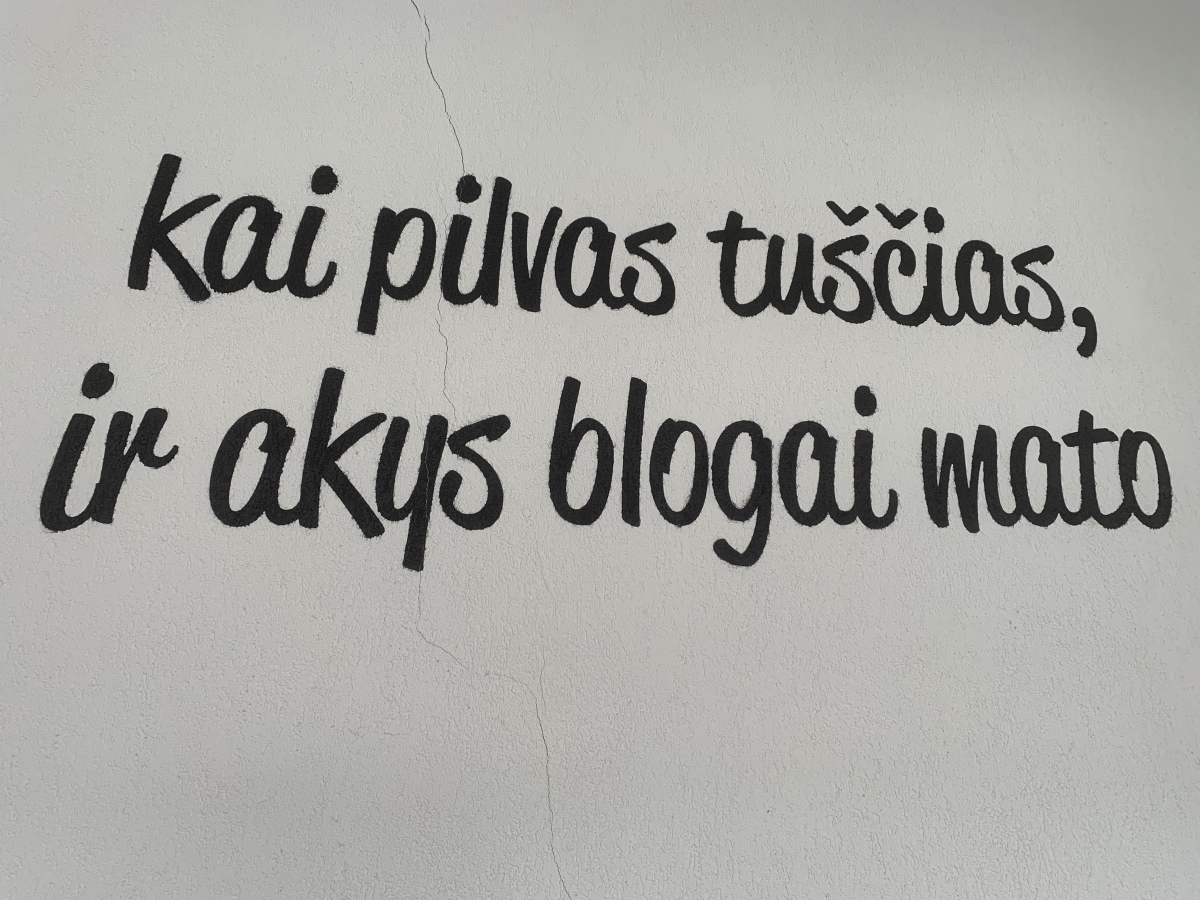 kai pilvas tuščias,
ir akys blogai mato